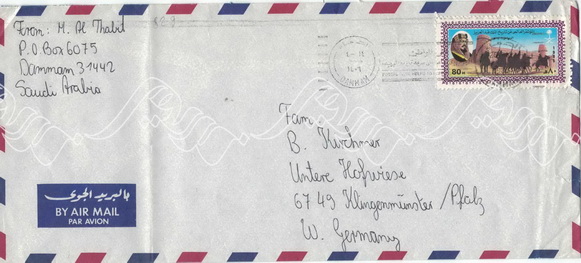 From: M. Al Thabit
P.O Box 6075
Dammam 31442
Saudi Arabia
80 H
٨٠
Fam.
B. Kirchmer
Untere Hofwiese
6749 Klingenmünster/Pfalz
W. Germany
بالبريد الجوى
BY AIR MAIL
PAR AVION